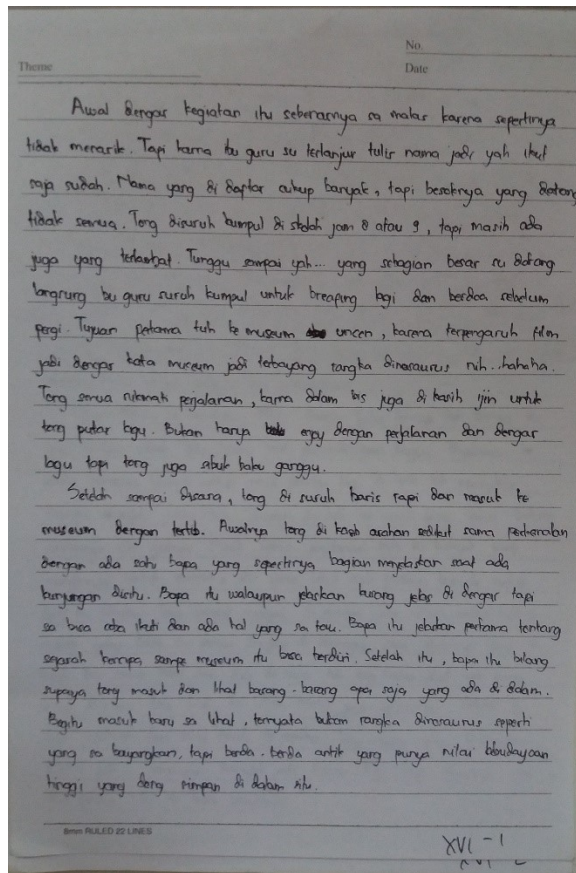 No.
Theme
Date
Awal dengar kegiatan itu sebenarnya sa malas karena sepertinya
tidak menarik. Tapi karna ibu guru su terlanjur tulis nama jadi yah ikut
saja sudah. Nama yang di daftar cukup banyak, tapi besoknya yang datang
tidak semua. Tong disuruh kumpul di skolah jam 8 atau 9, tapi masih ada
juga yang terlambat. Tunggu sampai yah... yang sebagian besar su datang
langsung bu guru suruh kumpul untuk breaping lagi dan berdoa sebelum
pergi. Tujuan pertama tuh ke museum uncen, karena terpengaruh film
jadi dengar kata museum jadi terbayang rangka dinosaurus nih..hahaha.
Tong semua nikmati perjalanan, karna dalam bis juga di kasih ijin untuk
tong putar lagu. Bukan hanya enjoy dengan perjalanan dan dengar
lagu tapi tong juga sibuk baku ganggu.
Setelah sampai disana, tong di suruh baris rapi dan masuk ke
museum dengan tertib. Awalnya tong di kasih arahan sedikit sama perkenalan
dengan ada satu bapa yang sepertinya bagian menjelaskan saat ada
kunjungan disitu. Bapa itu walaupun jelaskan kurang jelas di dengar tapi
sa bisa coba ikuti dan ada hal yang sa tau. Bapa itu jelaskan pertama tentang
sejarah kenapa sampe museum itu bisa terdiri. Setelah itu, bapa itu bilang
supaya tong masuk dan lihat barang-barang apa saja yang ada di dalam.
Begitu masuk baru sa lihat, ternyata bukan rangka dinosaurus seperti
yang sa bayangkan, tapi benda-benda antik yang punya nilai kebudayaan
tinggi yang dong simpan di dalam situ.
8mm RULED 22 LINES
XVI-1